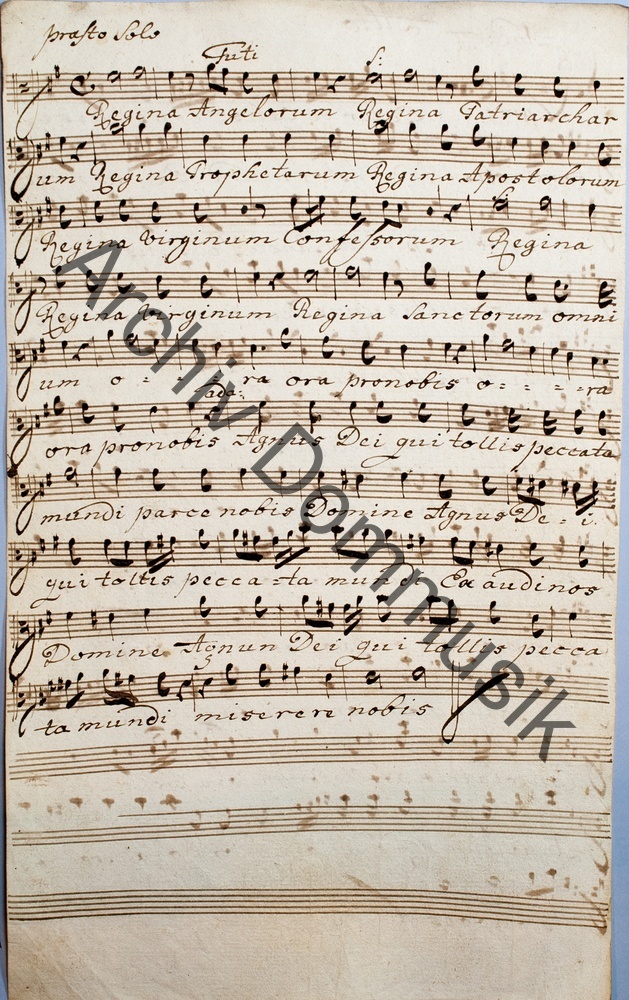 præsto Solo
Tuti S:
Regina Angelorum Regina Patriarchar
um Regina Prophetarum Regina Apostolorum
Regina Virginum Confessorum Regina
Regina Virginum Regina Sanctorum omni
um o - - - ra ora pronobis o - - - ra
ada:
ora pronobis Agnus Dei qui tollis peccata
mundi parce nobis Domine Agnus De - i.
qui tollis pecca - ta mundi Exaudinos
Domine Agnun Dei qui tollis pecca
ta mundi miserere nobis
Archiv Dommusik